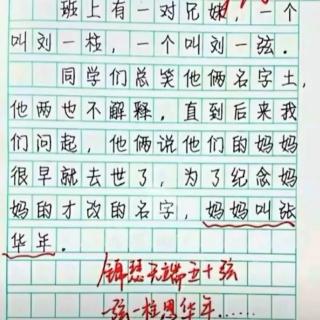 班上有一对兄妹，一个
叫刘一柱，一个叫刘一弦．
同学们总笑他俩名字土，
他两也不解释．直到后来我
们问起，他俩说他们的妈妈
很早就去世了，为了纪念妈
妈的才改的名字，妈妈叫张
华年．
锦瑟无端五十弦
一弦一柱思华年……